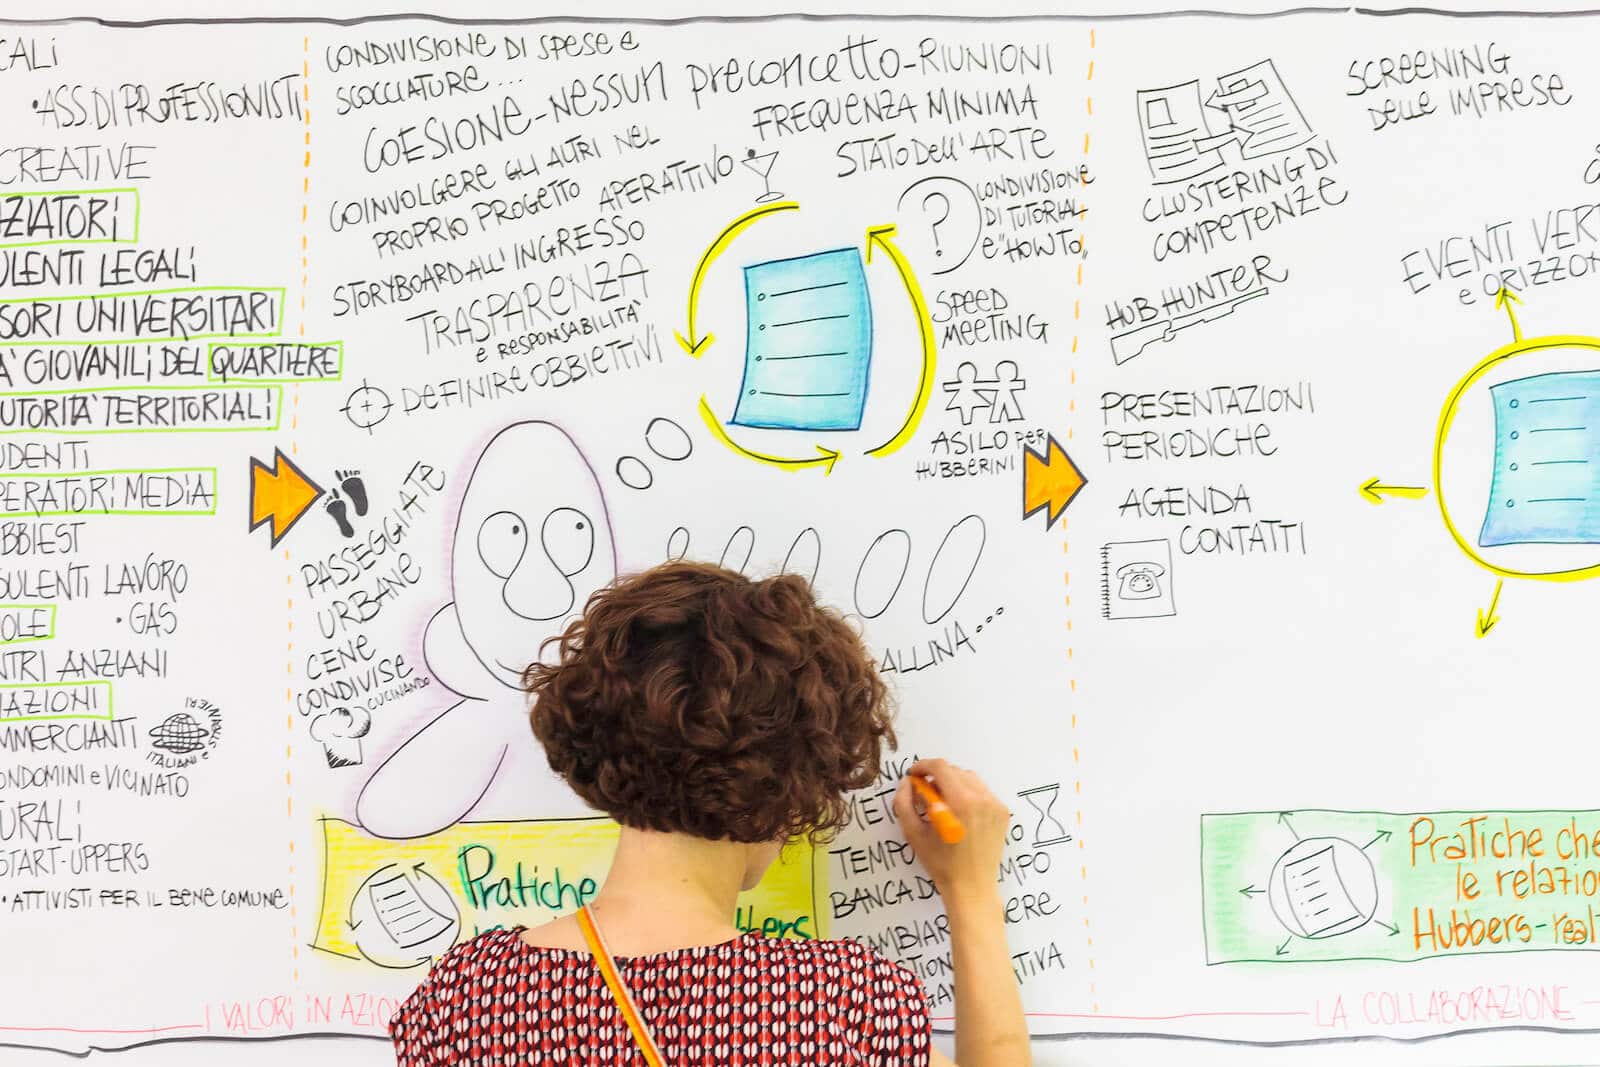 CALI
• ASS. DI PROFESSIONISTI
CREATIVE
ZIATORI
ULENTI LEGALI
SORI UNIVERSITARI
A' GIOVANILI DEL QUARTIERE
UTORITA' TERRITORIALI
UDENTI
PERATORI MEDIA
BBIEST
SULENTI LAVORO
OLE
• GAS
NTRI ANZIANI
AZIONI
MMERCIANTI
ITALIANI e STRANIERI
ONDOMINI e VICINATO
URALI
START-UPPERS
• ATTIVISTI PER IL BENE COMUNE
CONDIVISIONE DI SPESE e
SCOCCIATURE...
COESIONE - NESSUN preconcetto - RIUNIONI
FREQUENZA MINIMA
COINVOLGERE GLI ALTRI NEL
PROPRIO PROGETTO
APERATTIVO
STATO Dell'ARTE
STORYBOARD ALL'INGRESSO
TRASPARENZA
e RESPONSABILITA'
DEFINIRE OBBIETTIVI
?
CONDIVISIONE
DI TUTORIAL
e "HOW TO"
SPEED
MEETING
ASILO per
HUBBERINI
PASSEGGIATE
URBANE
CENE
CONDIVISE
CUCINANDO
ALLINA...
MET
TEMPO
BANCA D
MPO
CAMBIAR
ERE
TION
ATIVA
Pratiche
bbers
I VALORI IN AZIO
SCREENING
delle IMPRESE
CLUSTERING DI
COMPETENZE
HUB HUNTER
EVENTI VERT
e ORIZZON
PRESENTAZIONI
PERIODICHE
AGENDA
CONTATTI
Pratiche che
le relazio
Hubbers-real
LA COLLABORAZIONE